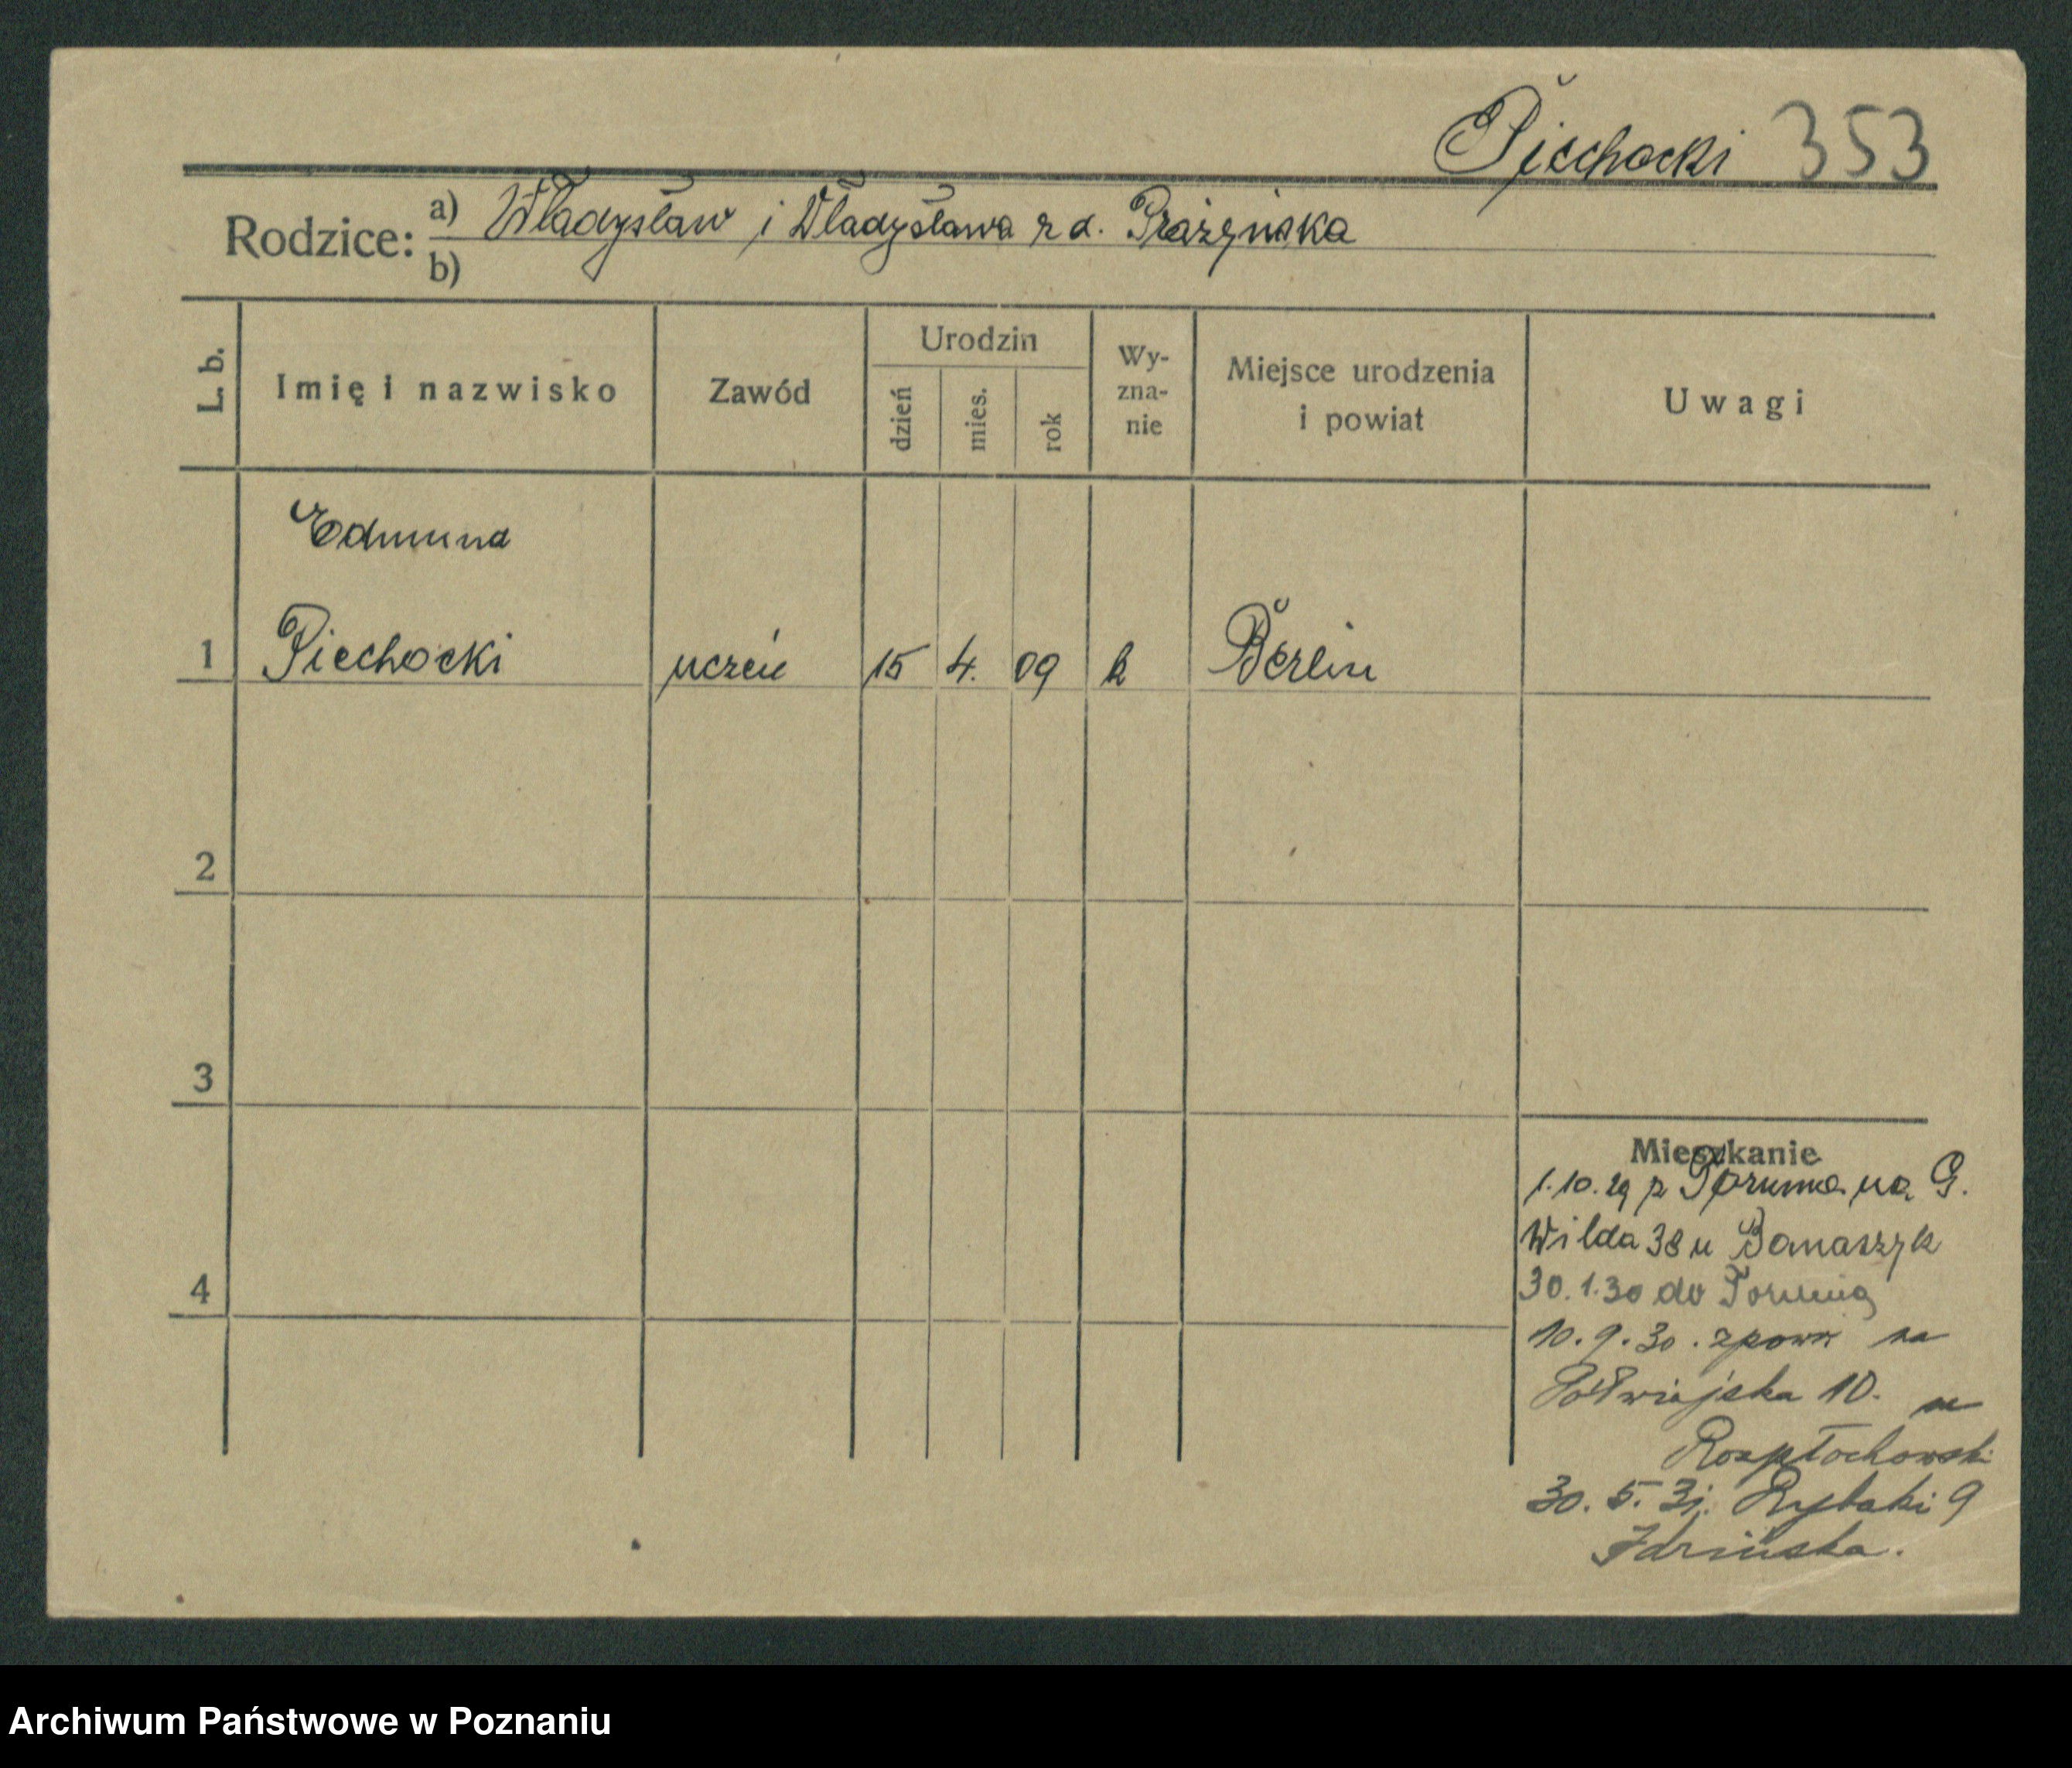 Piechocki 353
Rodzice: a) Władysław i Władysława z d. Prażyńska
b)
L. b. Imię i nazwisko Zawód Urodzin dzień mies. rok Wy-zna-nie Miejsce urodzenia i powiat Uwagi
Edmund
1 Piechocki uczeń 15 4. 09 k Berlin
2
3
4
Mieszkanie
1.10.29 z Torunia na G.
Wilda 38 u Banaszyk
30.1.30 do Torunia
10.9.30. zpowr na
Półwiejska 10. u
Rozpłochowski
30.5.31. Rybaki 9
Archiwum Państwowe w Poznaniu